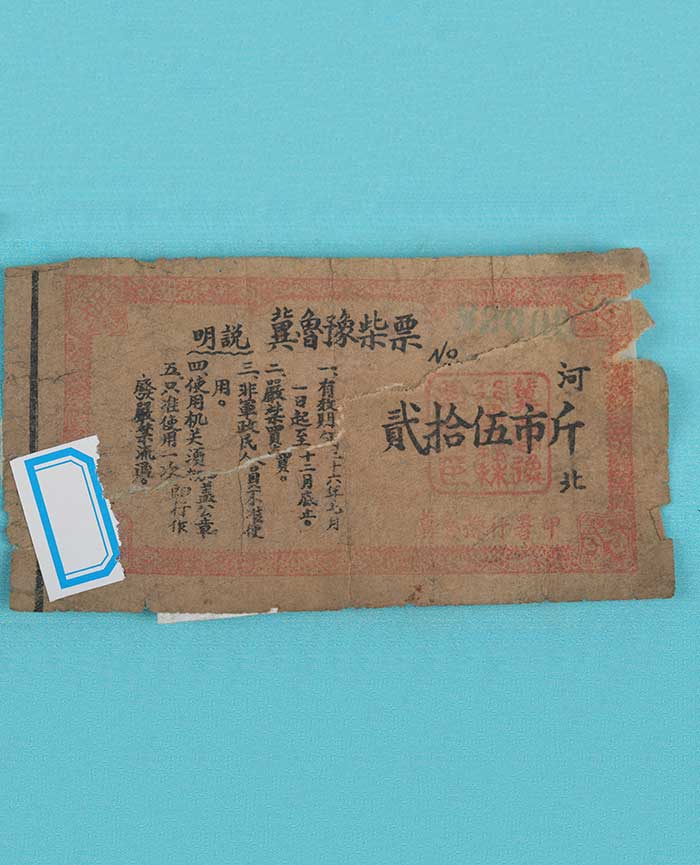 冀魯豫柴票
No.
河北
貳拾伍市斤
説明
一、有效期 三十六年九月
一日起至十二月底止。
二、嚴禁買 。
三、非軍政民人員不 使
用。
四、使用机关須 蓋公章
五、只准使用一次即行作
廢嚴禁流通。